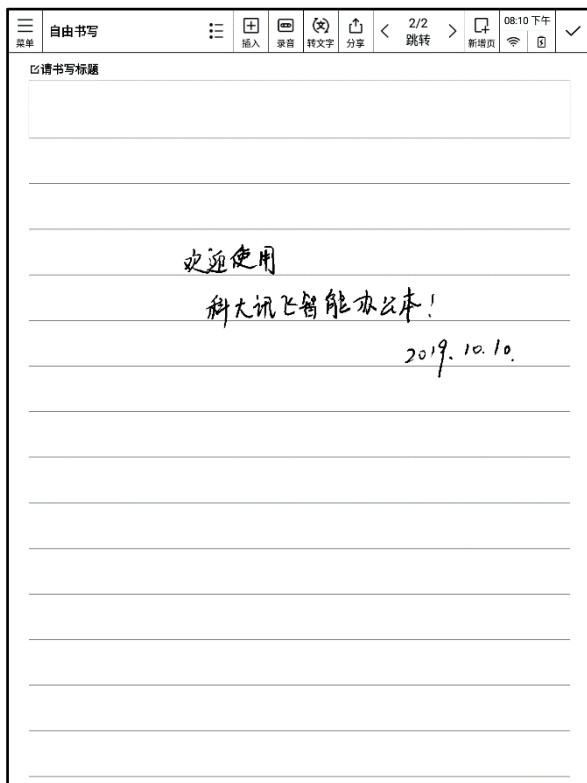 菜单 自由书写 插入 录音 转文字 分享 2/2 跳转 新增页 08:10 下午
请书写标题
欢迎使用
科大讯飞智能办公本!
2019.10.10.